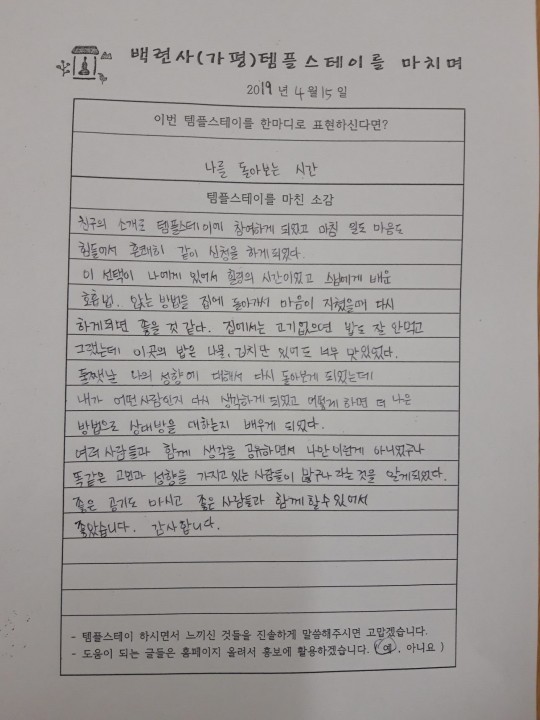 백련사(가평)템플스테이를 마치며
2019 년 4 월 15 일
이번 템플스테이를 한마디로 표현하신다면?
나를 돌아보는 시간
템플스테이를 마친 소감
친구의 소개로 템플스테이에 참여하게 되었고 마침 일도 마음도
힘들어서 흔쾌히 같이 신청을 하게 되었다.
이 선택이 나에게 있어서 힐링의 시간이었고 스님에게 배운
호흡법, 앉는 방법을 집에 돌아가서 마음이 지쳤을때 다시
하게되면 좋을 것 같다. 집에서는 고기없으면 밥도 잘 안먹고
그랬는데 이곳의 밥은 나물, 김치만 있어도 너무 맛있었다.
둘쨋날 나의 성향에 대해서 다시 돌아보게 되었는데
내가 어떤사람인지 다시 생각하게 되었고 어떻게 하면 더 나은
방법으로 상대방을 대하는지 배우게 되었다.
여러 사람들과 함께 생각을 공유하면서 나만 이런게 아니었구나
똑같은 고민과 성향을 가지고 있는 사람들이 많구나 라는 것을 알게되었다.
좋은 공기도 마시고 좋은 사람들과 함께 할수 있어서
좋았습니다. 감사합니다.
- 템플스테이 하시면서 느끼신 것들을 진솔하게 말씀해주시면 고맙겠습니다.
- 도움이 되는 글들은 홈페이지 올려서 홍보에 활용하겠습니다. (예, 아니요)